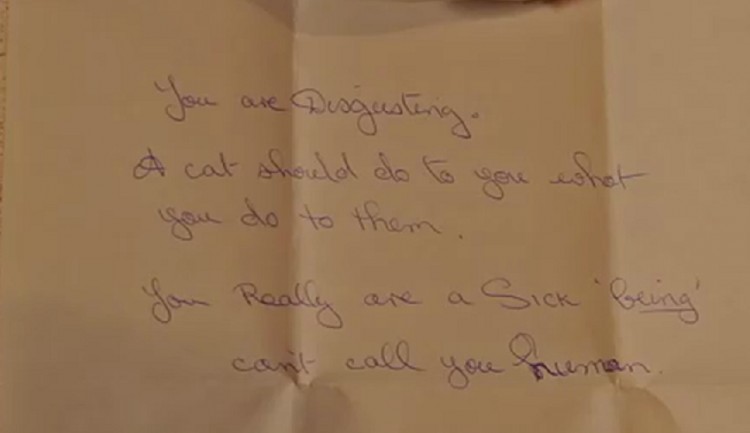 You are Disgusting.
A cat should do to you what
you do to them.
You Really are a Sick 'being'
can't call you human.